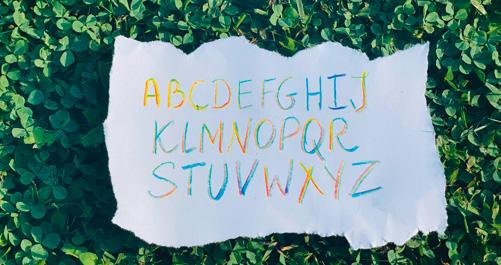 ABCDEFGHIJ
KLMNOPQR
STUVWXYZ